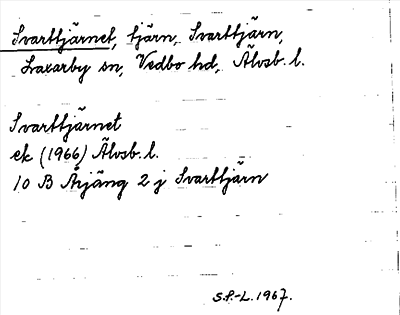 Svarttjärnet, tjärn, Svarttjärn,
Laxarby sn, Vedbo hd, Älvsb. l.
Svarttjärnet
ek (1966) Älvsb. l.
10 B Årjäng 2 j Svarttjärn
S.P.-L. 1967.